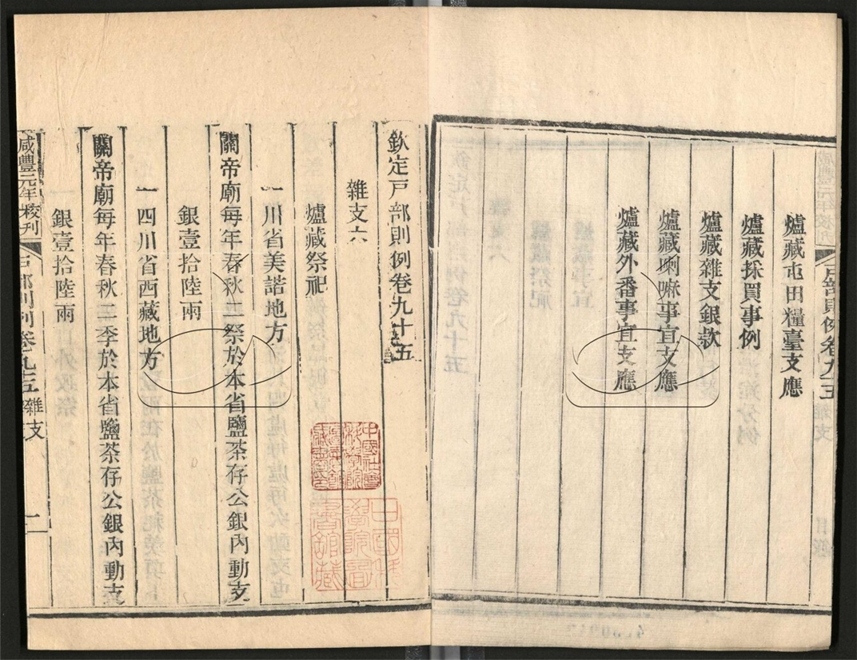 爐藏屯田糧臺支應
爐藏採買事例
爐藏雜支銀款
爐藏喇嘛事宜支應
爐藏外番事宜支應
戶部則例卷九十五
雜支
目錄
欽定戶部則例卷九十五
雜支六
爐藏祭祀
一川省美諾地方
關帝廟每年春秋二祭於本省鹽茶存公銀內動支
銀壹拾陸兩
一四川省西藏地方
關帝廟每年春秋二季於本省鹽茶存公銀內動支
銀壹拾陸兩
咸豐元年校刊
戶部則例卷九十五
雜支